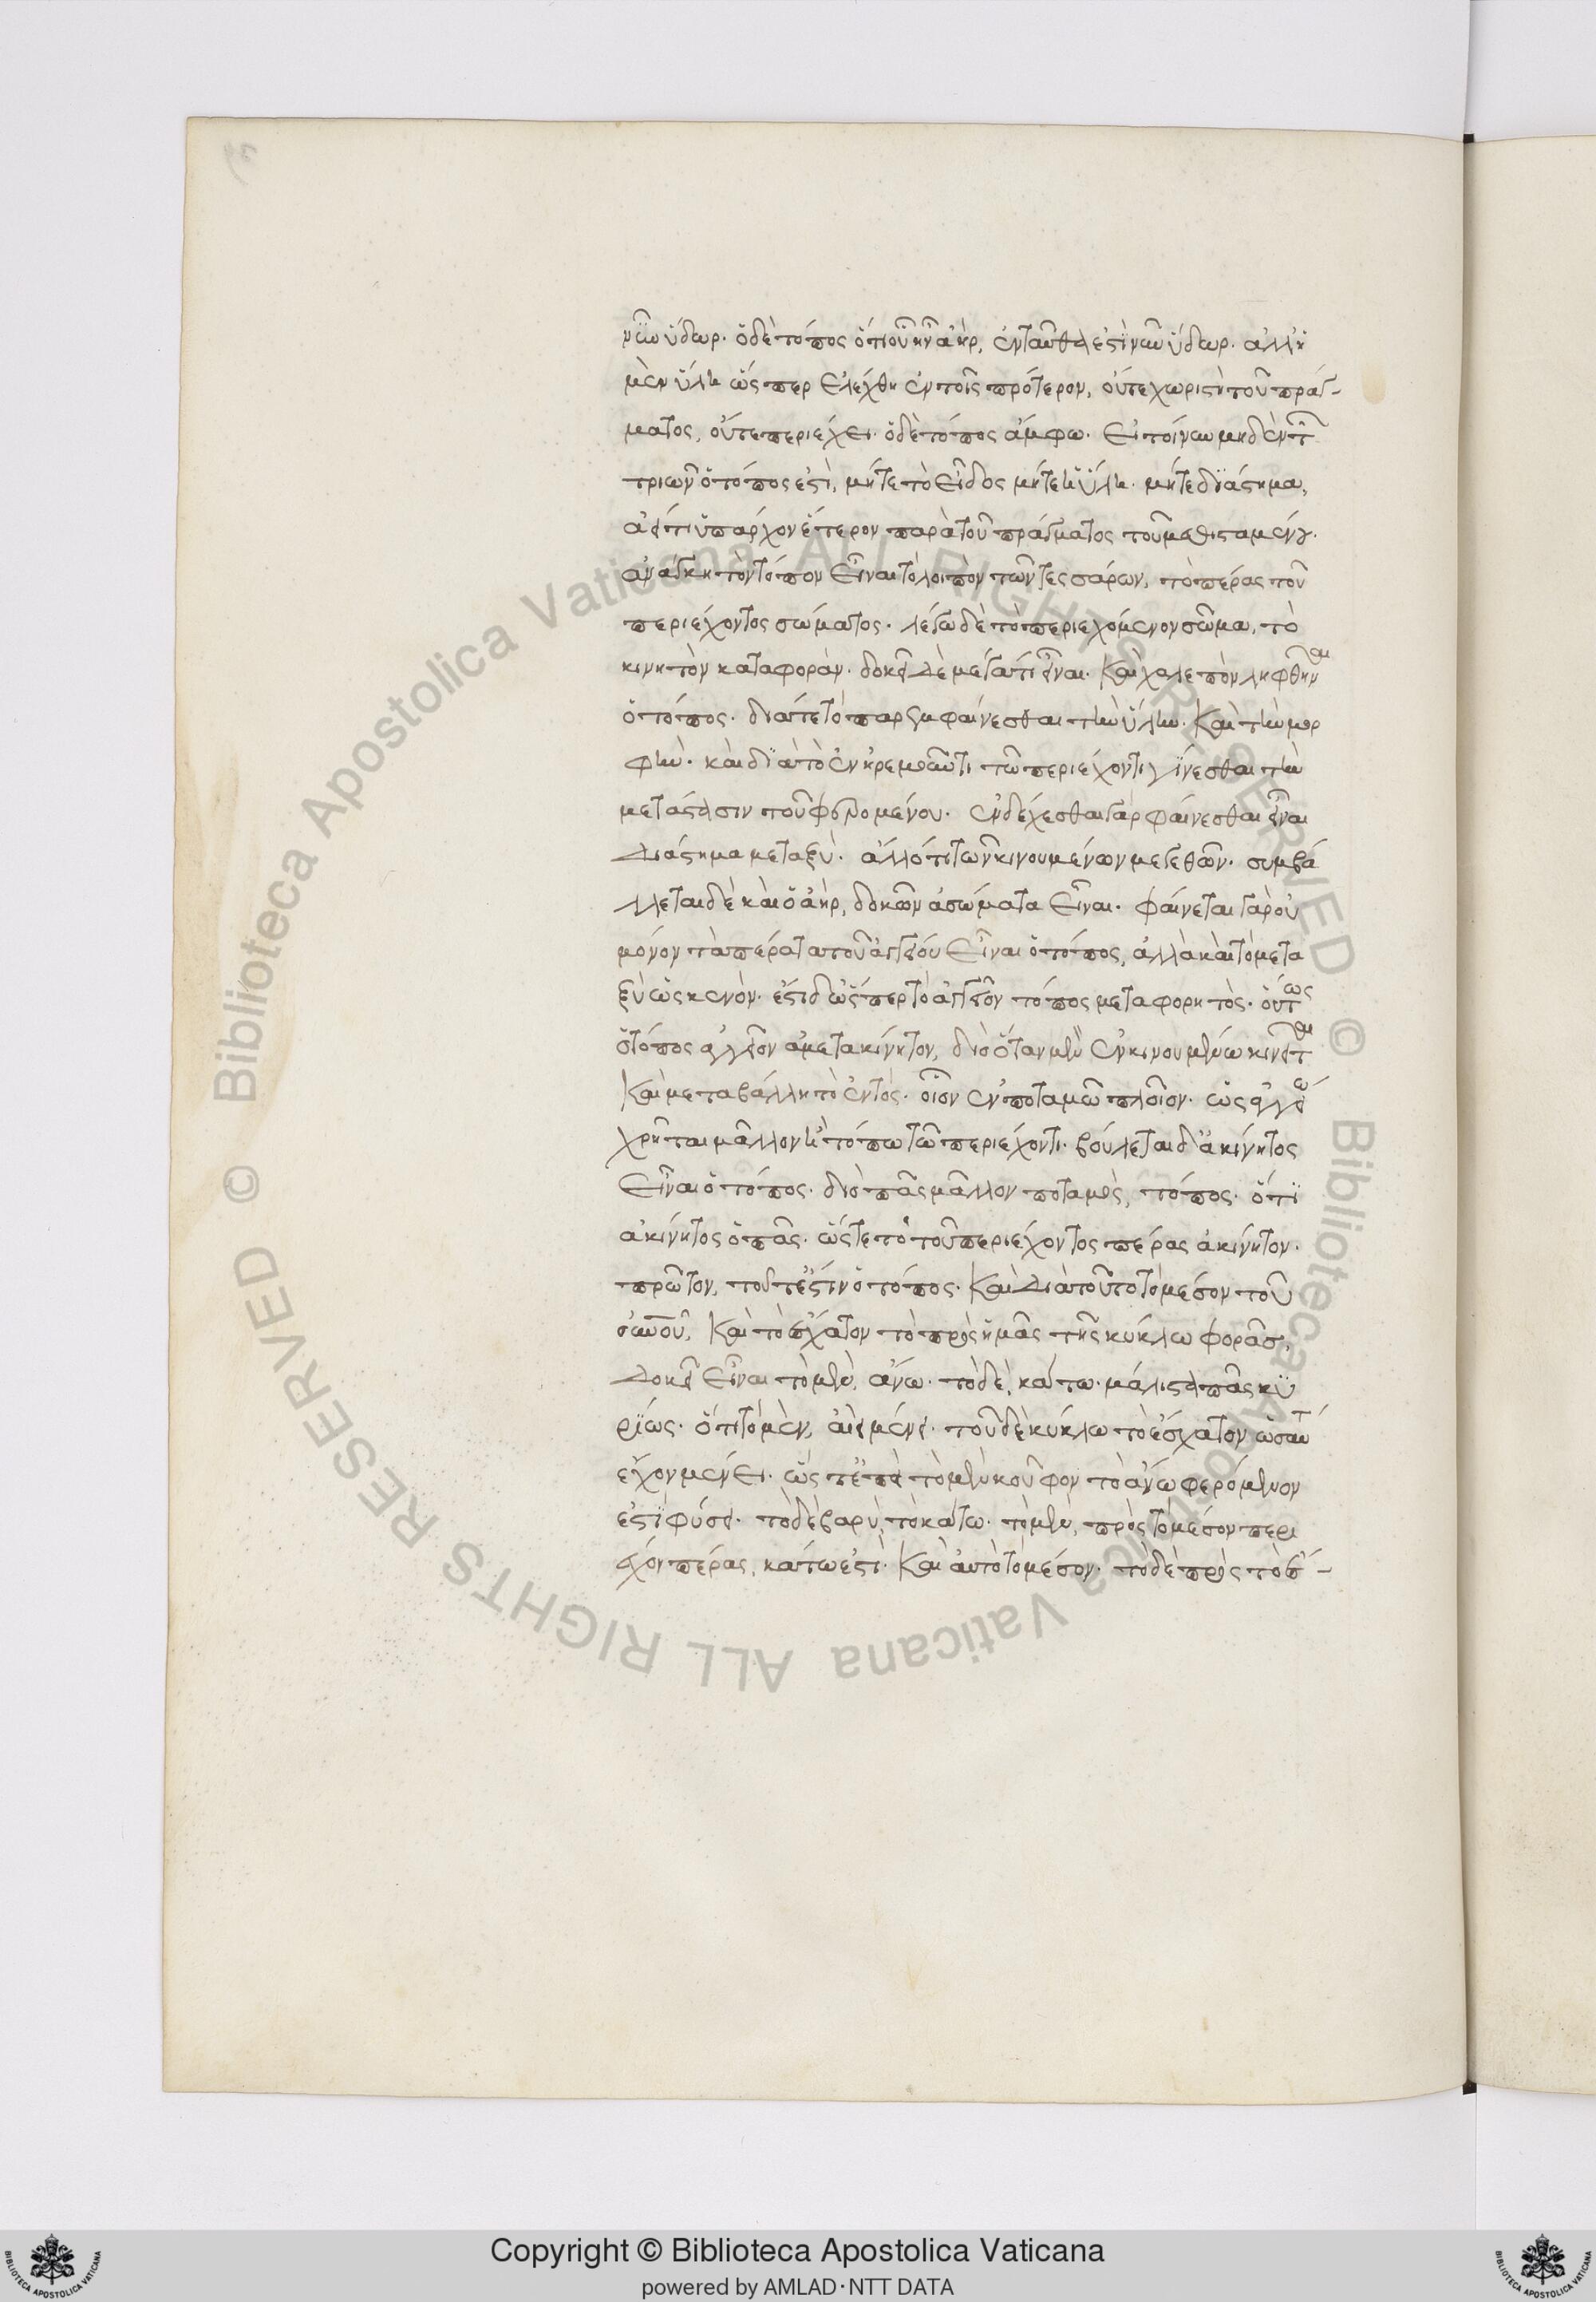 νῦν ὕδωρ. ὁ δὲ τόπος ὅτι οὗ ἦν ἀὴρ, ἐνταῦθα ἐστὶ νῦν ὕδωρ. ἀλλ' ἡ
μὲν ὕλη ὥσπερ ἐλέχθη ἐν τοῖς πρότερον, οὔτε χωριστὴ τοῦ πράγ-
ματος, οὔτε περιέχει. ὁ δὲ τόπος ἄμφω. Εἰ τοίνυν μηδὲν τῶν
τριῶν ὁ τόπος ἐστὶ, μήτε τὸ εἶδος μήτε ἡ ὕλη. μήτε διάστημα,
ἀεί τι ὑπάρχον ἕτερον παρὰ τοῦ πράγματος τοῦ μεθισταμένου.
ἀνάγκη τὸν τόπον εἶναι τὸ λοιπὸν τῶν τεσσάρων, τὸ πέρας τοῦ
περιέχοντος σώματος. λέγω δὲ τὸ περιεχόμενον σῶμα, τὸ
κινητὸν κατὰ φοράν. δοκεῖ δὲ μέγα τι εἶναι. καὶ χαλεπὸν ληφθῆναι
ὁ τόπος. διά τε τὸ παρεμφαίνεσθαι τὴν ὕλην. καὶ τὴν μορ
φήν. καὶ διὰ τὸ ἐν ἠρεμοῦντι τῷ περιέχοντι γίνεσθαι τὴν
μετάστασιν τοῦ φερομένου. ἐνδέχεσθαι γὰρ φαίνεσθαι εἶναι
διάστημα μεταξύ. ἄλλό τι τῶν κινουμένων μεγεθῶν. συμβά
λλεται δὲ καὶ ὁ ἀὴρ, δοκῶν ἀσώματα εἶναι. φαίνεται γὰρ οὐ
μόνον τὰ πέρατα τοῦ ἀγγείου εἶναι ὁ τόπος, ἀλλὰ καὶ τὸ μετα
ξὺ ὡς κενόν. ἔστι δ' ὥσπερ τὸ ἀγγεῖον τόπος μεταφορητός. οὕτως
ὁ τόπος ἀγγεῖον ἀμετακίνητον, διὸ ὅταν μὲν ἐν κινουμένῳ κινεῖται
καὶ μεταβάλλη τὸ ἐντός. οἷον ἐν ποταμῶ πλοῖον. ὡς ἀγγείω
χρῆται μᾶλλον ἢ τόπω τῶ περιέχοντι. βούλεται δ' ἀκίνητος
εἶναι ὁ τόπος. διὸ πᾶς μᾶλλον ποταμὸς, τόπος. ὅτι
ἀκίνητος ὁ πᾶς. ὥστε τὸ τοῦ περιέχοντος πέρας ἀκίνητον.
πρῶτον, τοῦτ' ἔστιν ὁ τόπος. καὶ διὰ τοῦτο τὸ μέσον τοῦ
οὐνοῦ, καὶ τὸ ἔσχατον τὸ πρὸς ἡμᾶς τῆς κύκλω φορᾶς,
δοκεῖ εἶναι τὸ μὲν, ἄνω. τὸ δὲ, κάτω. μάλιστα πᾶς κυ
ρίως. ὅτι τὸ μὲν, αἰεὶ μένει. τοῦ δὲ κύκλω τὸ ἔσχατον ὡσαύτ
έχον μένει. ὥστ' ἐπεὶ τὸ μὲν κοῦφον τὸ ἄνω φερόμενον
ἐστὶ φύσει. τὸ δὲ βαρὺ, τὸ κάτω. τὸ μὲν, πρὸς τὸ μέσον περι
έχον πέρας, κάτω ἐστὶ. καὶ αὐτὸ τὸ μέσον. τὸ δὲ πρὸς τὸ ἔ-